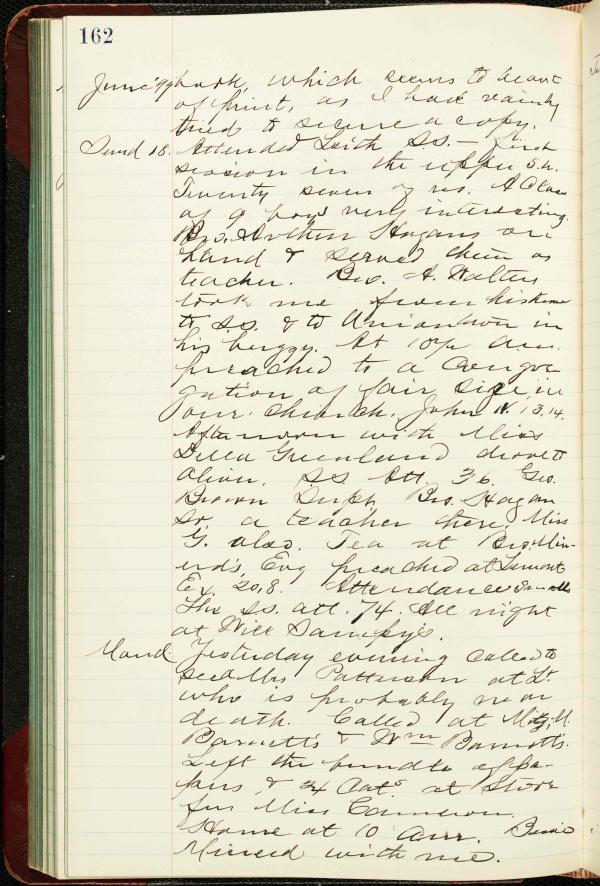 162
June '99 book, which seems to be out
of print, as I had vainly
tried to secure a copy.
Sund 18. Attended Leith S.S. — first
session in the upper S.h.
Twenty seven of us. A Class
of 9 boys very interesting.
Bro. Arthur Hagans on
hand & served them as
teacher. Bro. A. Walters
took me from his home
to S.S. & to Uniontown in
his buggy. At 10 1/2 a.m.
preached to a Congre
gation of fair size, in
our Church. John IV. 13,14.
Afternoon with Miss
Della Greenland drove to
Oliver. S S Att. 36. Geo.
Brown Supt. Bro. Hagan
Sr. a teacher there, Miss
G. also. Tea at Bro.
Evg preached at Lemont
Ex. 20,8. Attendance small
The S.S. att. 74. All night
at Will
Mond. Yesterday evening called to
see Mrs Patterson at Lt.
who is probably near
death. Called at
Barnett's & Wm Barnett's.
Left the bundle of pa-
pers & at Store
for Miss Cameron.
Home at 10 a.m. Bessie
with me.